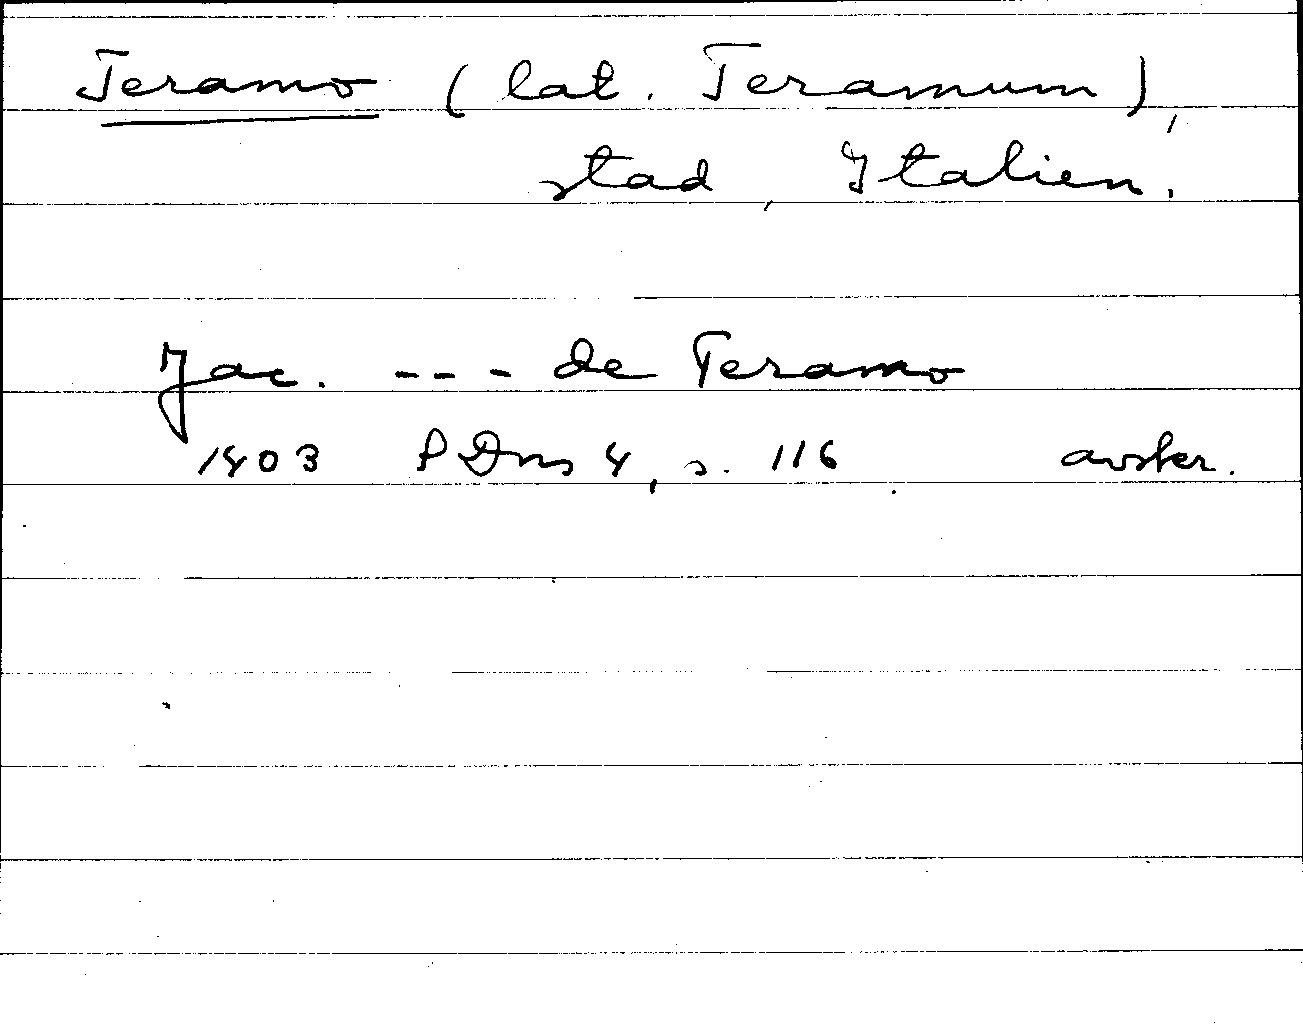 Teramo (lat. Teramum),
stad, Italien.
Jac. --- de Teramo
1403 PDns 4, s. 116 avskr.